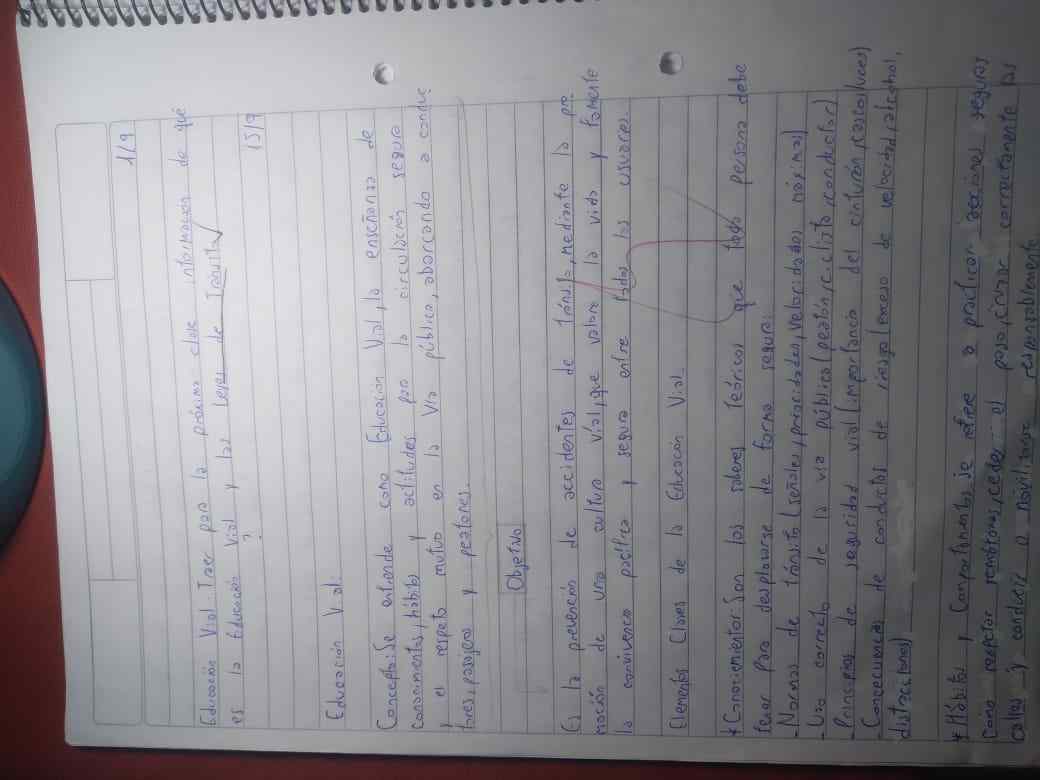 1/9
Educación Vial. Traer para la próxima clase información de qué
es la Educación Vial y las Leyes de Tránsito
?
15/9
Educación Vial:
Concepto: Se entiende como Educación Vial, la enseñanza de
conocimientos, hábitos y actitudes para la circulación segura
y el respeto mutuo en la Vía pública, abarcando a conduc-
tores, pasajeros y peatones.
Objetivo
Es la prevención de accidentes de tránsito, mediante la pro
moción de una cultura vial, que valore la vida y fomente
la convivencia pacífica y segura entre todos los usuarios.
Elementos Claves de la Educación Vial.
* Conocimientos: Son los saberes teóricos que toda persona debe
tener para desplazarse de forma segura:
- Normas de tránsito (señales, prioridades, velocidades máximas)
- Uso correcto de la vía pública (peatón, ciclista, conductor)
- Principios de seguridad vial (importancia del cinturón, casco, luces)
- Concecuencias de conductas de riesgo (exceso de velocidad, alcohol,
distracciones)
* Hábitos y Comportamientos: se refiere a practicar acciones seguras
como respetar semáforos, ceder el paso, cruzar correctamente las
calles y conducir o movilizarse responsablemente